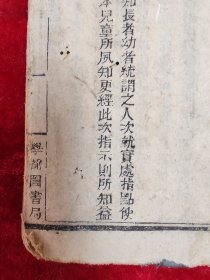 長者幼者統謂之人次就實處指點使
本兒童所夙知更經此次指示則所知益
一
學部圖書局